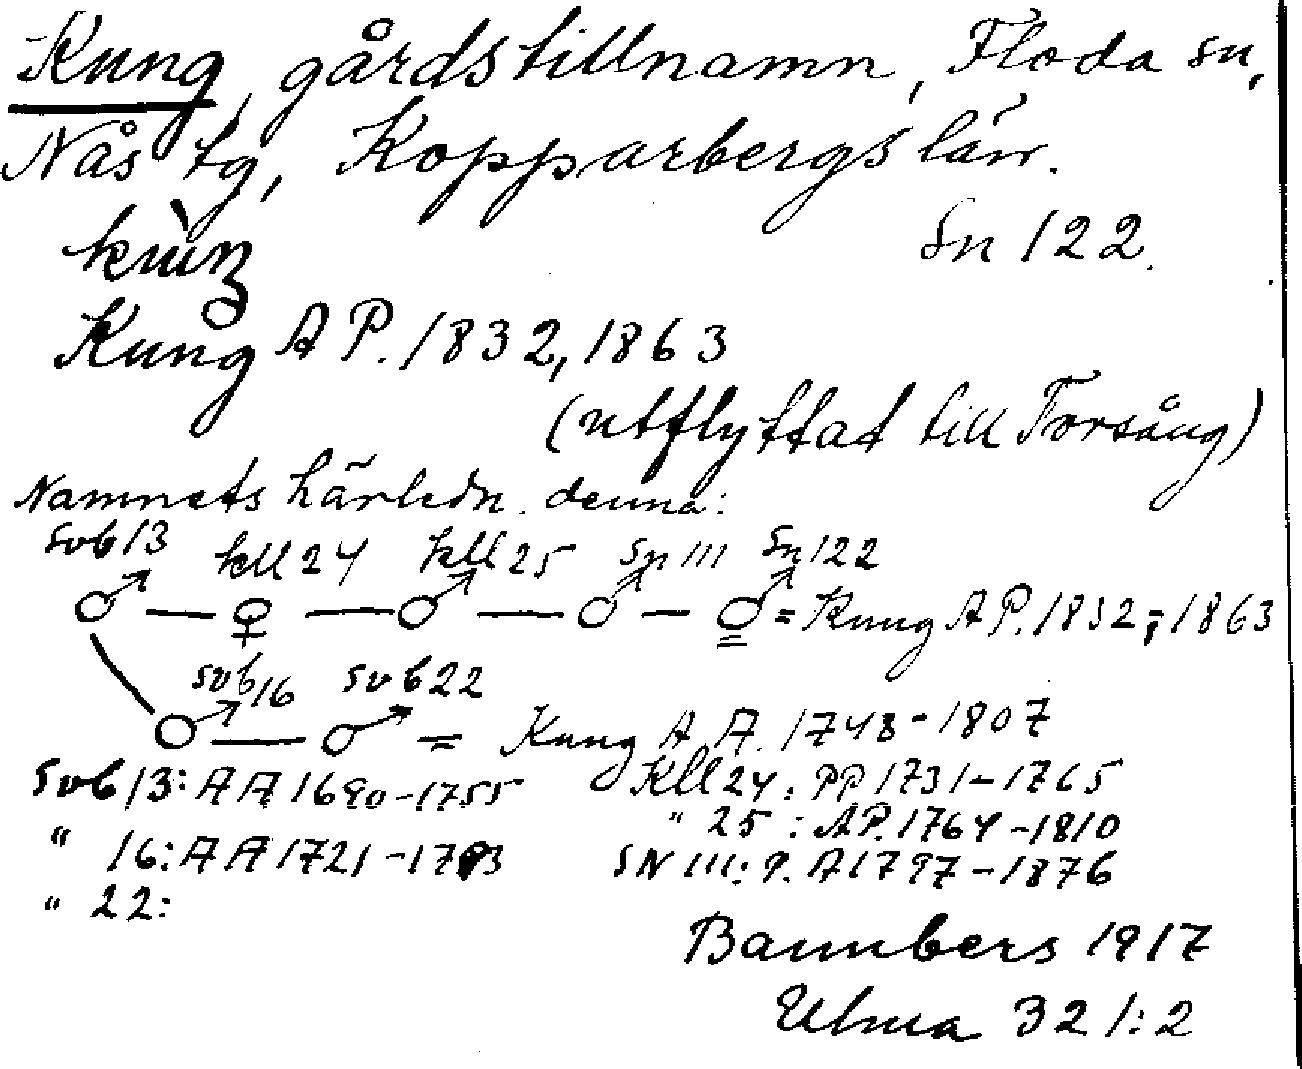 Kung, gårdstillnamn, Floda sn,
Nås tg, Kopparbergs län.
Sn 122.
Kung A P. 1832, 1863
(utflyttat till Torsång)
Namnets härledn. denna:
Svb 13 kll 24 kll 25 Sn 111 Sn 122
♂ — ♀ — ♂ — ♂ — ♂ = Kung A P. 1832, 1863
svb 16 svb 22
♂ — ♂ = Kung A A. 1748-1807
Svb 13: A A 1690-1755 Kll 24: PP 1731-1765
" 25: AP. 1764-1810
" 16: A A 1721-1793 SN 111: P. A 1797-1876
" 22:
1917
Ulma 321:2